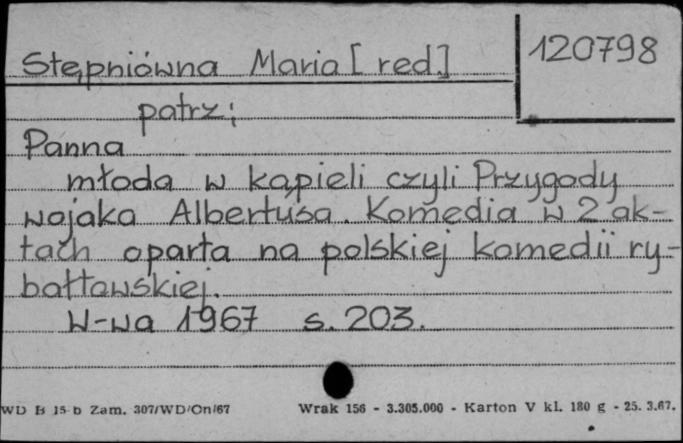 120798
Stępniówna Maria [red.]
patrz:
Panna
młoda w kąpieli czyli Przygody
wojaka Albertusa. Komedia w 2 ak-
tach oparta na polskiej komedii ry-
bałtowskiej.
W-wa 1967 s. 203.
WD B 15-b Zam. 307/WD/On/67 Wrak 156 - 3.305.000 - Karton V kl. 180 g - 25. 3.67.